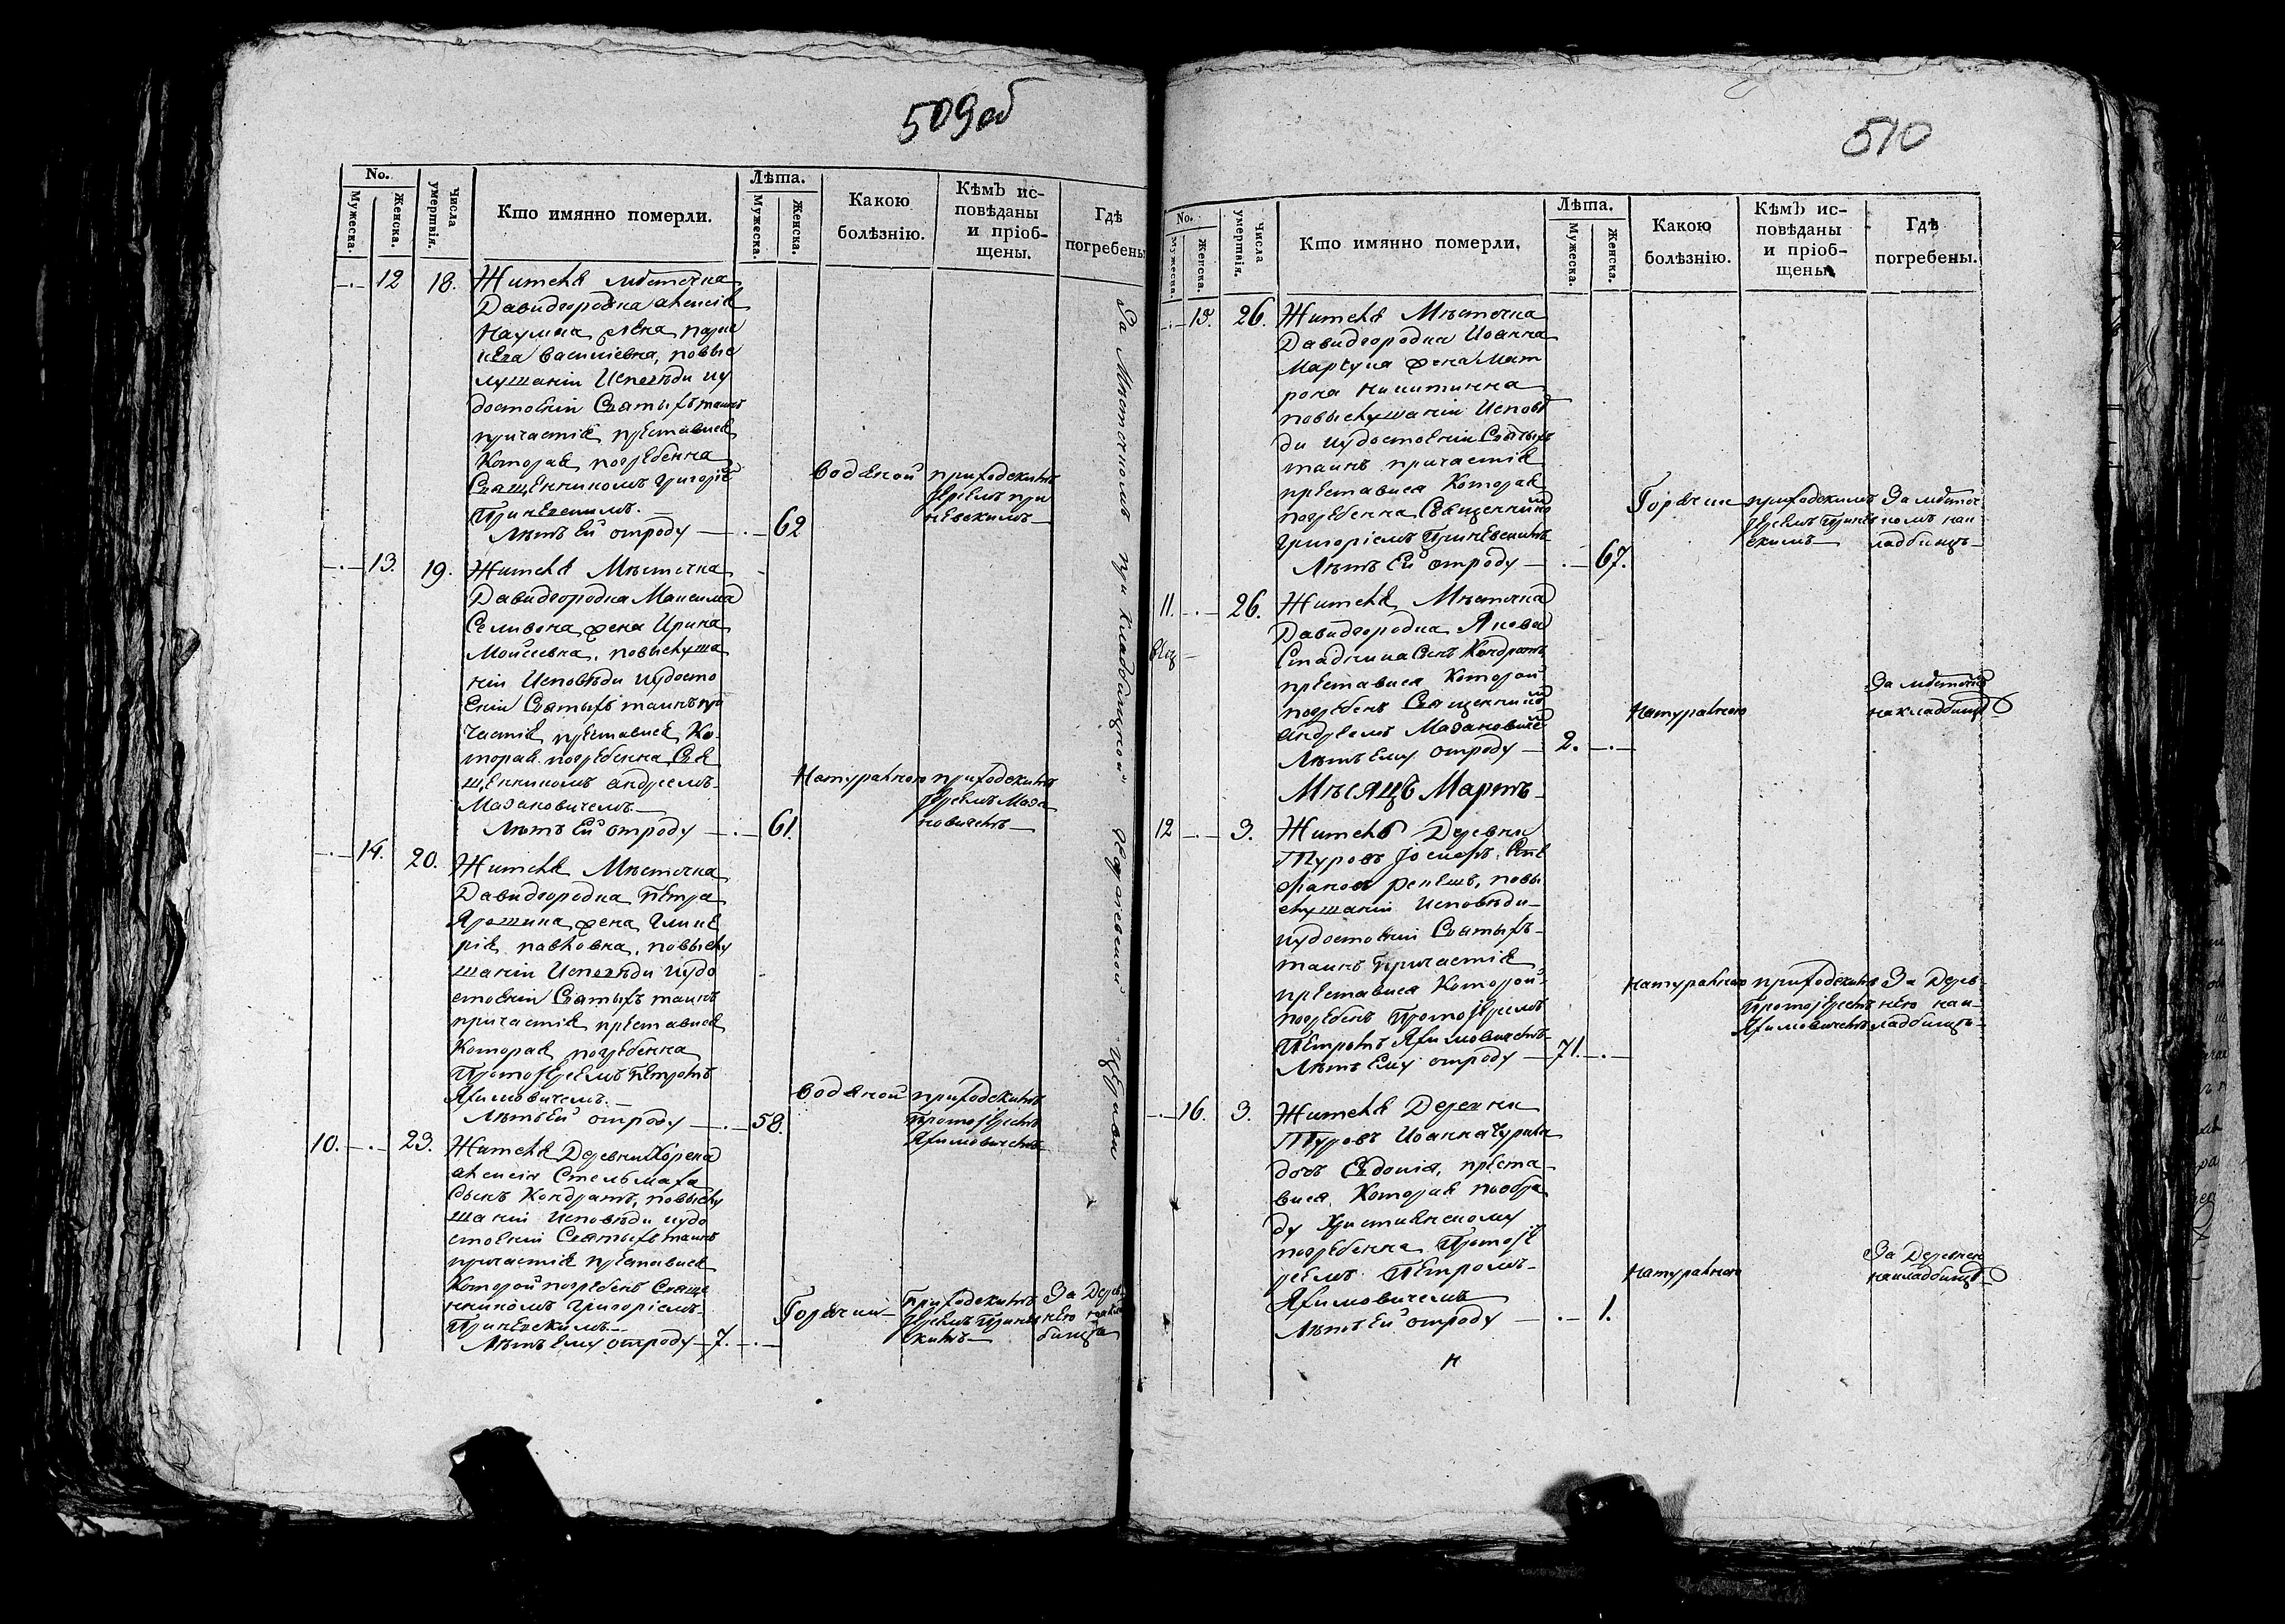 509об
No.
Мужеска.
Женска.
Числа умертвія.
Кто имянно померли.
Лѣта.
Мужеска.
Женска.
Какою болѣзнію.
Кѣмъ ис-
повѣданы
и пріоб-
щены.
Гдѣ
погребены
12 18. Жителя мѣстечка
Давидгородка алексія
Наумика жена, пара
василіевна, повыс
лушаніи Исповѣди иу
достоеніи Святыхъ таинъ
причастія преставися
Которая погребенна
Священникомъ григоріе
Приневскимъ.
Лѣтъ Ей отроду 62
водяной
приходскимъ
Іереемъ при
невскимъ
13. 19. Жителя Мѣстечка
Давидгородка Максима
Селивона жена Ирина
Моисеевна, повыслуша
ніи Исповѣди иудосто
еніи Святыхъ таинъ при
частія преставися Ко
торая погребенна Свя
щенникомъ андреемъ
Мазановичемъ.
Лѣтъ Ей отроду 61.
Натуральною
приходскимъ
Іереемъ Маза
новичемъ
14. 20. Жителя Мѣстечка
Давидгородка Петра
Ярошика жена Глике
рія павловна, повыслу
шаніи Исповѣди иудо
стоеніи Святыхъ таинъ
причастія преставися
Которая погребенна
Протоіереемъ Петромъ
Якимовичемъ.
Лѣтъ Ей отроду 58.
водяной
приходскимъ
Протоіереемъ
Якимовичемъ
10. 23. Жителя Деревни Хорска
алексія Стельмаха
сынъ Кондратъ, повыслу
шаніи Исповѣди иудо
стоеніи Святыхъ таинъ
причастія преставися
Которой погребенъ Свяще
нникомъ григоріемъ
Приневскимъ
Лѣтъ Ему отроду 7.
Горячки
Приходскимъ
Іереемъ Принев
скимъ
За Дерев
нею накла
бищѣ
За Мѣстечкомъ при Кладбищной церкви
510
No.
Мужеска.
Женска.
Числа умертвія.
Кто имянно померли.
Лѣта.
Мужеска.
Женска.
Какою
болѣзнію.
Кѣмъ ис-
повѣданы
и пріоб-
щены.
Гдѣ
погребены.
15. 26. Жителя Мѣстечка
Давидгородка Иоанна
жена Мат
рона никитична
повыслушаніи Исповѣ
ди иудостоеніи Святыхъ
таинъ причастія
преставися Которая
погребенна Священнико
Григоріемъ Приневскимъ
Лѣтъ Ей отроду 67.
Горячки
приходскимъ
Іереемъ Принев
скимъ
За мѣстеч
комъ нак
ладбищѣ
11. 26. Жителя Мѣстечка
Давидгородка Якова
Стадника Сынъ Кондратъ
преставися Которой
погребенъ Священнико
андреемъ Мазановиче
Лѣтъ Ему отроду 2.
Натуральною
За мѣстечко
накладбищѣ
Мѣсяцъ Мартъ
12 3. Житель Деревни
Туровъ Іосифъ Сте
фановъ репешъ, повы
слушаніи Исповѣди
иудостоеніи Святыхъ
таинъ Причастія
преставися Которой
погребенъ Протоіереемъ
Петромъ Якимовичемъ
Лѣтъ Ему отроду 71.
натуральною
приходскимъ
Протоіереемъ
Якимовичемъ
За Дерев
нею нак
ладбищѣ
16. 3. Жителя Деревни
Туровъ Иоанна Чурила
дочъ Евдокія, преста
вися Которая пообря
ду Христіянскому
погребенна Протоіе
реемъ Петромъ
Якимовичемъ
Лѣтъ Ей отроду 1.
натуральною
За Деревнею
накладбищѣ